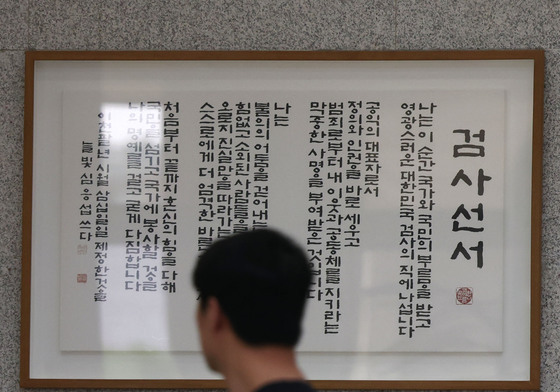 검사선서
나는 이 순간 국가와 국민의 부름을 받고
영광스러운 대한민국 검사의 직에 나섭니다
공익의 대표자로서
정의와 인권을 바로 세우고
범죄로부터 내 이웃과 공동체를 지키라는
막중한 사명을 부여받은 것입니다
나는
불의의 어둠을 걷어내는
힘없고 소외된 사람들을
오로지 진실만을 따라가는
스스로에게 더 엄격한 바른
처음부터 끝까지 혼신의 힘을 다해
국민을 섬기고 국가에 봉사할 것을
나의 명예를 걸고 굳게 다짐합니다
시월 삼십일일 제정한 것을
늘빛 심응섭 쓰다